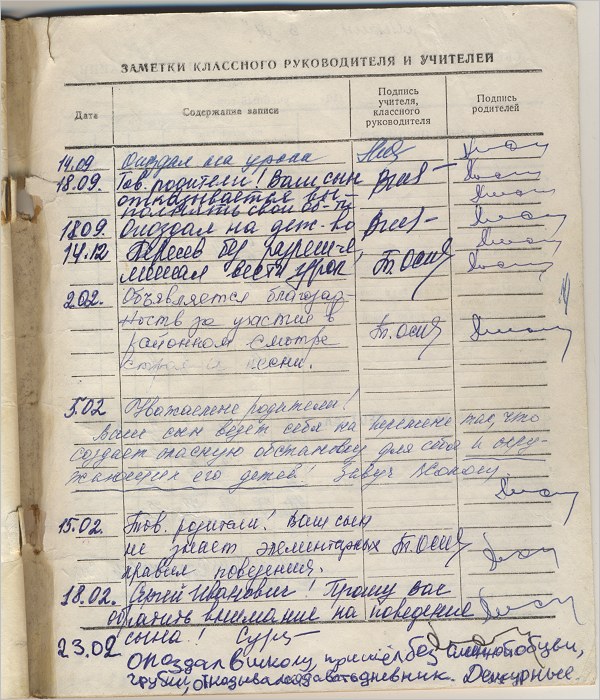 ЗАМЕТКИ КЛАССНОГО РУКОВОДИТЕЛЯ И УЧИТЕЛЕЙ
Дата Содержание записи Подпись учителя, классного руководителя Подпись родителей
14.09 Опоздал на уроки
18.09. Тов. родители! Ваш сын
отказывается вы-
полнять свои об-ти
18.09 Опоздал на деж-во
14.12 Пересев без разреше,
мешал вести урок Т. Осип
2.02. Объявляется благодар-
ность за участие в
районном смотре Т. Осип
строя и песни.
5.02 Уважаемые родители!
Ваш сын ведет себя на перемене так, что
создает опасную обстановку для себя и окру-
жающих его детей! Завуч
15.02. Тов. родители! Ваш сын
не знает элементарных Т. Осип
правил поведения.
18.02. Сергей Иванович! Прошу Вас
обратить внимание на поведение
сына!
23.02 опоздал в школу, пришёл без обуви,
грубил, отказывался дать дневник. Дежурные.